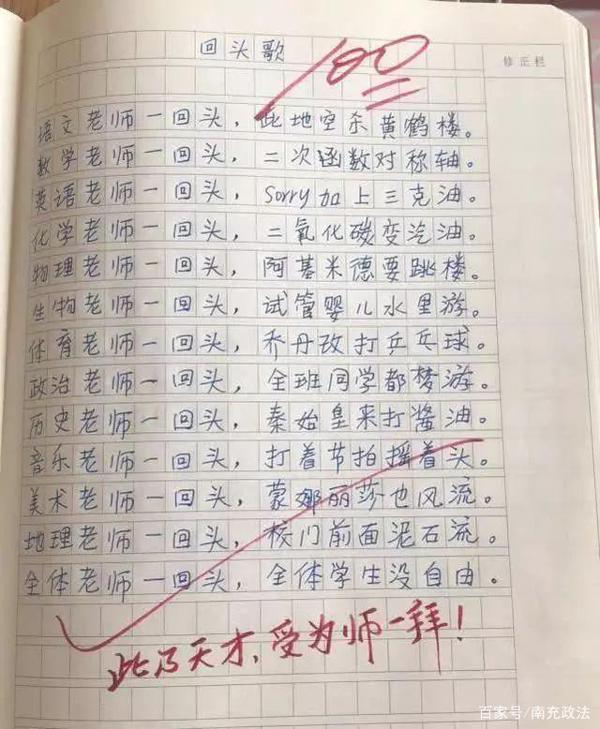 回头歌
100
修正栏
语文老师一回头，此地空余黄鹤楼。
数学老师一回头，二次函数对称轴。
英语老师一回头，Sorry加上三克油。
化学老师一回头，二氧化碳变汽油。
物理老师一回头，阿基米德要跳楼。
生物老师一回头，试管婴儿水里游。
体育老师一回头，乔丹改打乒乓球。
政治老师一回头，全班同学都梦游。
历史老师一回头，秦始皇来打酱油。
音乐老师一回头，打着节拍摇着头。
美术老师一回头，蒙娜丽莎也风流。
地理老师一回头，校门前面泥石流。
全体老师一回头，全体学生没自由。
此乃天才，受为师一拜！
百家号/南充政法